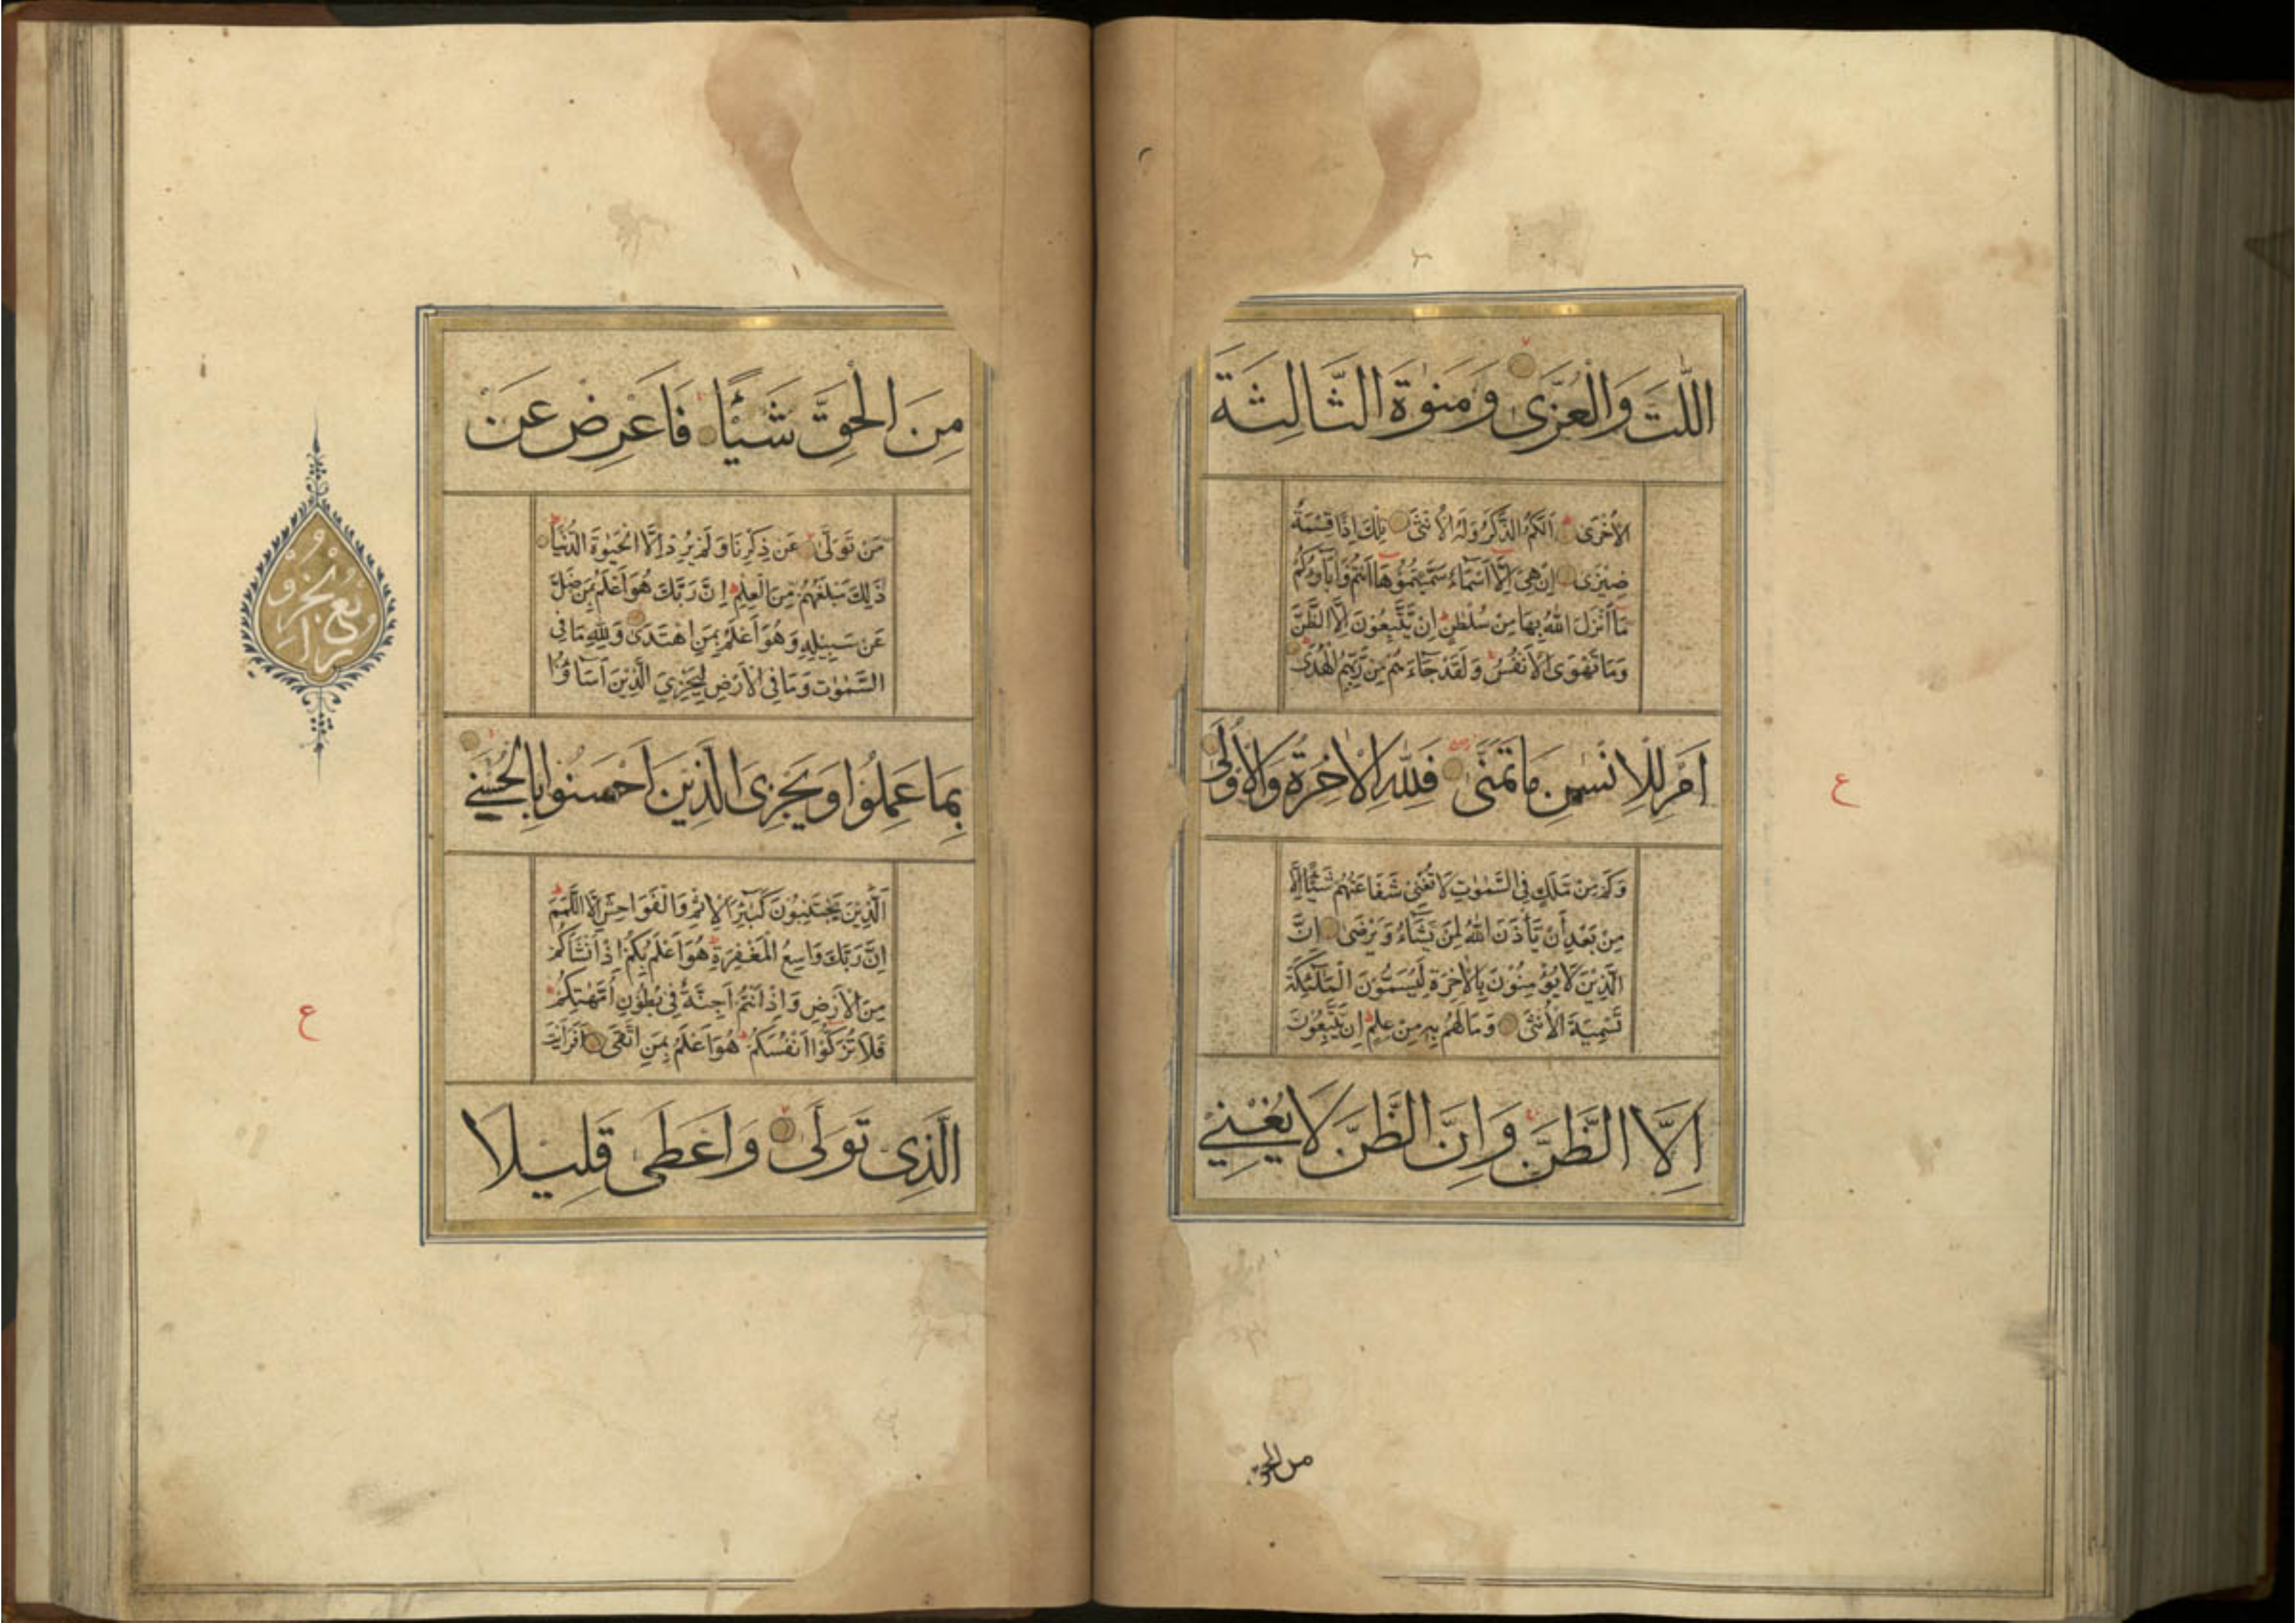 اللّٰتَ وَالْعُزّٰى وَمَنٰوةَ الثَّالِثَةَ
الْاُخْرٰى اَلَكُمُ الذَّكَرُ وَلَهُ الْاُنْثٰى تِلْكَ اِذًا قِسْمَةٌ
ضِيْزٰى اِنْ هِىَ اِلَّا اَسْمَاءٌ سَمَّيْتُمُوْهَا اَنْتُمْ وَاٰبَاؤُكُمْ
مَا اَنْزَلَ اللّٰهُ بِهَا مِنْ سُلْطٰنٍ اِنْ يَتَّبِعُوْنَ اِلَّا الظَّنَّ
وَمَا تَهْوَى الْاَنْفُسُ وَلَقَدْ جَاءَهُمْ مِنْ رَبِّهِمُ الْهُدٰى
اَمْ لِلْاِنْسٰنِ مَا تَمَنّٰى فَلِلّٰهِ الْاٰخِرَةُ وَالْاُوْلٰى
ع
وَكَمْ مِنْ مَلَكٍ فِى السَّمٰوٰتِ لَا تُغْنِىْ شَفَاعَتُهُمْ شَيْئًا اِلَّا
مِنْ بَعْدِ اَنْ يَأْذَنَ اللّٰهُ لِمَنْ يَشَاءُ وَيَرْضٰى اِنَّ
الَّذِيْنَ لَا يُؤْمِنُوْنَ بِالْاٰخِرَةِ لَيُسَمُّوْنَ الْمَلٰئِكَةَ
تَسْمِيَةَ الْاُنْثٰى وَمَا لَهُمْ بِهِ مِنْ عِلْمٍ اِنْ يَتَّبِعُوْنَ
اِلَّا الظَّنَّ وَاِنَّ الظَّنَّ لَا يُغْنِىْ
من الحق
مِنَ الْحَقِّ شَيْئًا فَاَعْرِضْ عَنْ
مَنْ تَوَلّٰى عَنْ ذِكْرِنَا وَلَمْ يُرِدْ اِلَّا الْحَيٰوةَ الدُّنْيَا
ذٰلِكَ مَبْلَغُهُمْ مِنَ الْعِلْمِ اِنَّ رَبَّكَ هُوَ اَعْلَمُ بِمَنْ ضَلَّ
عَنْ سَبِيْلِهِ وَهُوَ اَعْلَمُ بِمَنِ اهْتَدٰى وَلِلّٰهِ مَا فِى
السَّمٰوٰتِ وَمَا فِى الْاَرْضِ لِيَجْزِىَ الَّذِيْنَ اَسَاؤُا
بِمَا عَمِلُوْا وَيَجْزِىَ الَّذِيْنَ اَحْسَنُوْا بِالْحُسْنٰى
اَلَّذِيْنَ يَجْتَنِبُوْنَ كَبٰئِرَ الْاِثْمِ وَالْفَوَاحِشَ اِلَّا اللَّمَمَ
اِنَّ رَبَّكَ وَاسِعُ الْمَغْفِرَةِ هُوَ اَعْلَمُ بِكُمْ اِذْ اَنْشَاَكُمْ
مِنَ الْاَرْضِ وَاِذْ اَنْتُمْ اَجِنَّةٌ فِىْ بُطُوْنِ اُمَّهٰتِكُمْ
فَلَا تُزَكُّوْا اَنْفُسَكُمْ هُوَ اَعْلَمُ بِمَنِ اتَّقٰى اَفَرَاَيْتَ
الَّذِىْ تَوَلّٰى وَاَعْطٰى قَلِيْلًا
ربع الجزو
ع